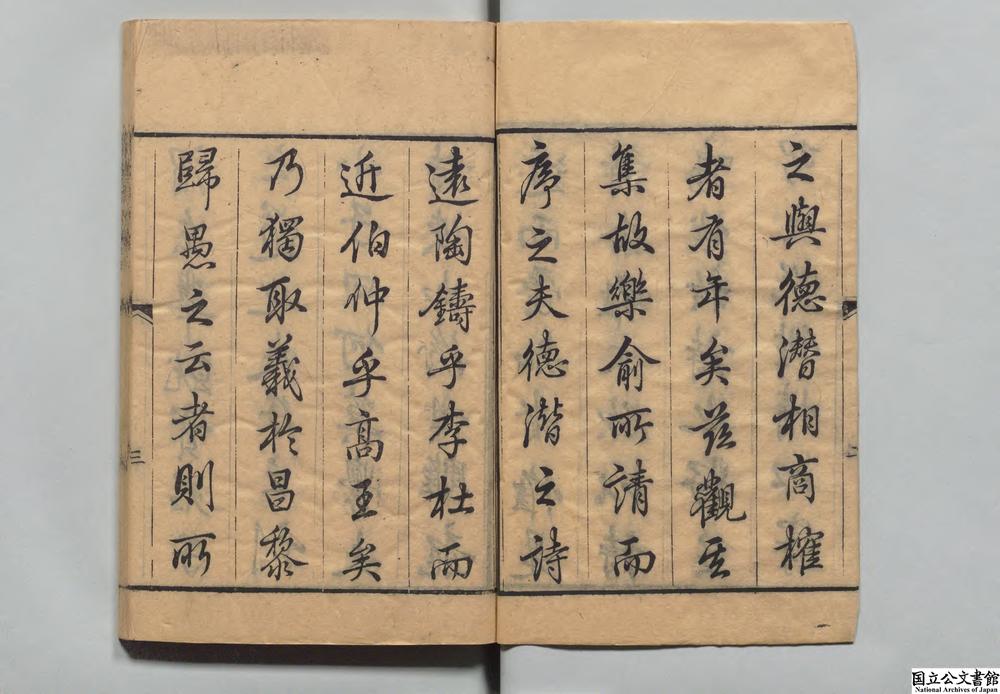 之與德潛相商榷
者有年矣茲觀其
集故樂俞所請而
序之夫德潛之詩
遠陶鑄乎李杜而
近伯仲乎高王矣
乃獨取義於昌黎
歸愚之云者則所
三
国立公文書館
National Archives of Japan